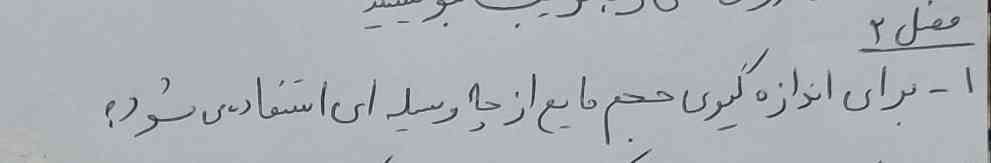 فصل ۲
۱- برای اندازه گیری حجم مایع از چه وسیله ای استفاده می شود؟